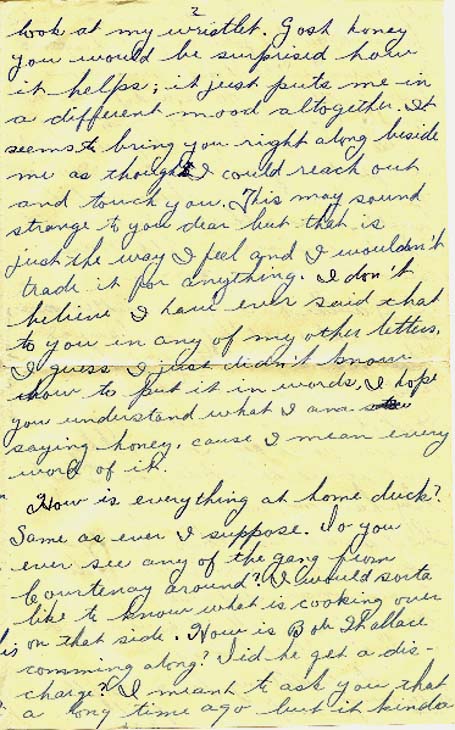 2
look at my wristlet. Gosh honey
you would be surprised how
it helps; it just puts me in
a different mood altogether. It
seems to bring you right along beside
me as though I could reach out
and touch you. This may sound
strange to you dear but that is
just the way I feel and I wouldn't
trade it for anything. I don't
believe I have ever said that
to you in any of my other letters.
I guess I just didn't know
how to put it in words. I hope
you understand what I am
saying honey, cause I mean every
word of it.
How is everything at home duck?
Same as ever I suppose. Do you
ever see any of the gang from
Courtenay around? I would sorta
like to know what is cooking over
on that side. How is Bob Wallace
comming along? Did he get a dis-
charge? I meant to ask you that
a long time ago but it kinda